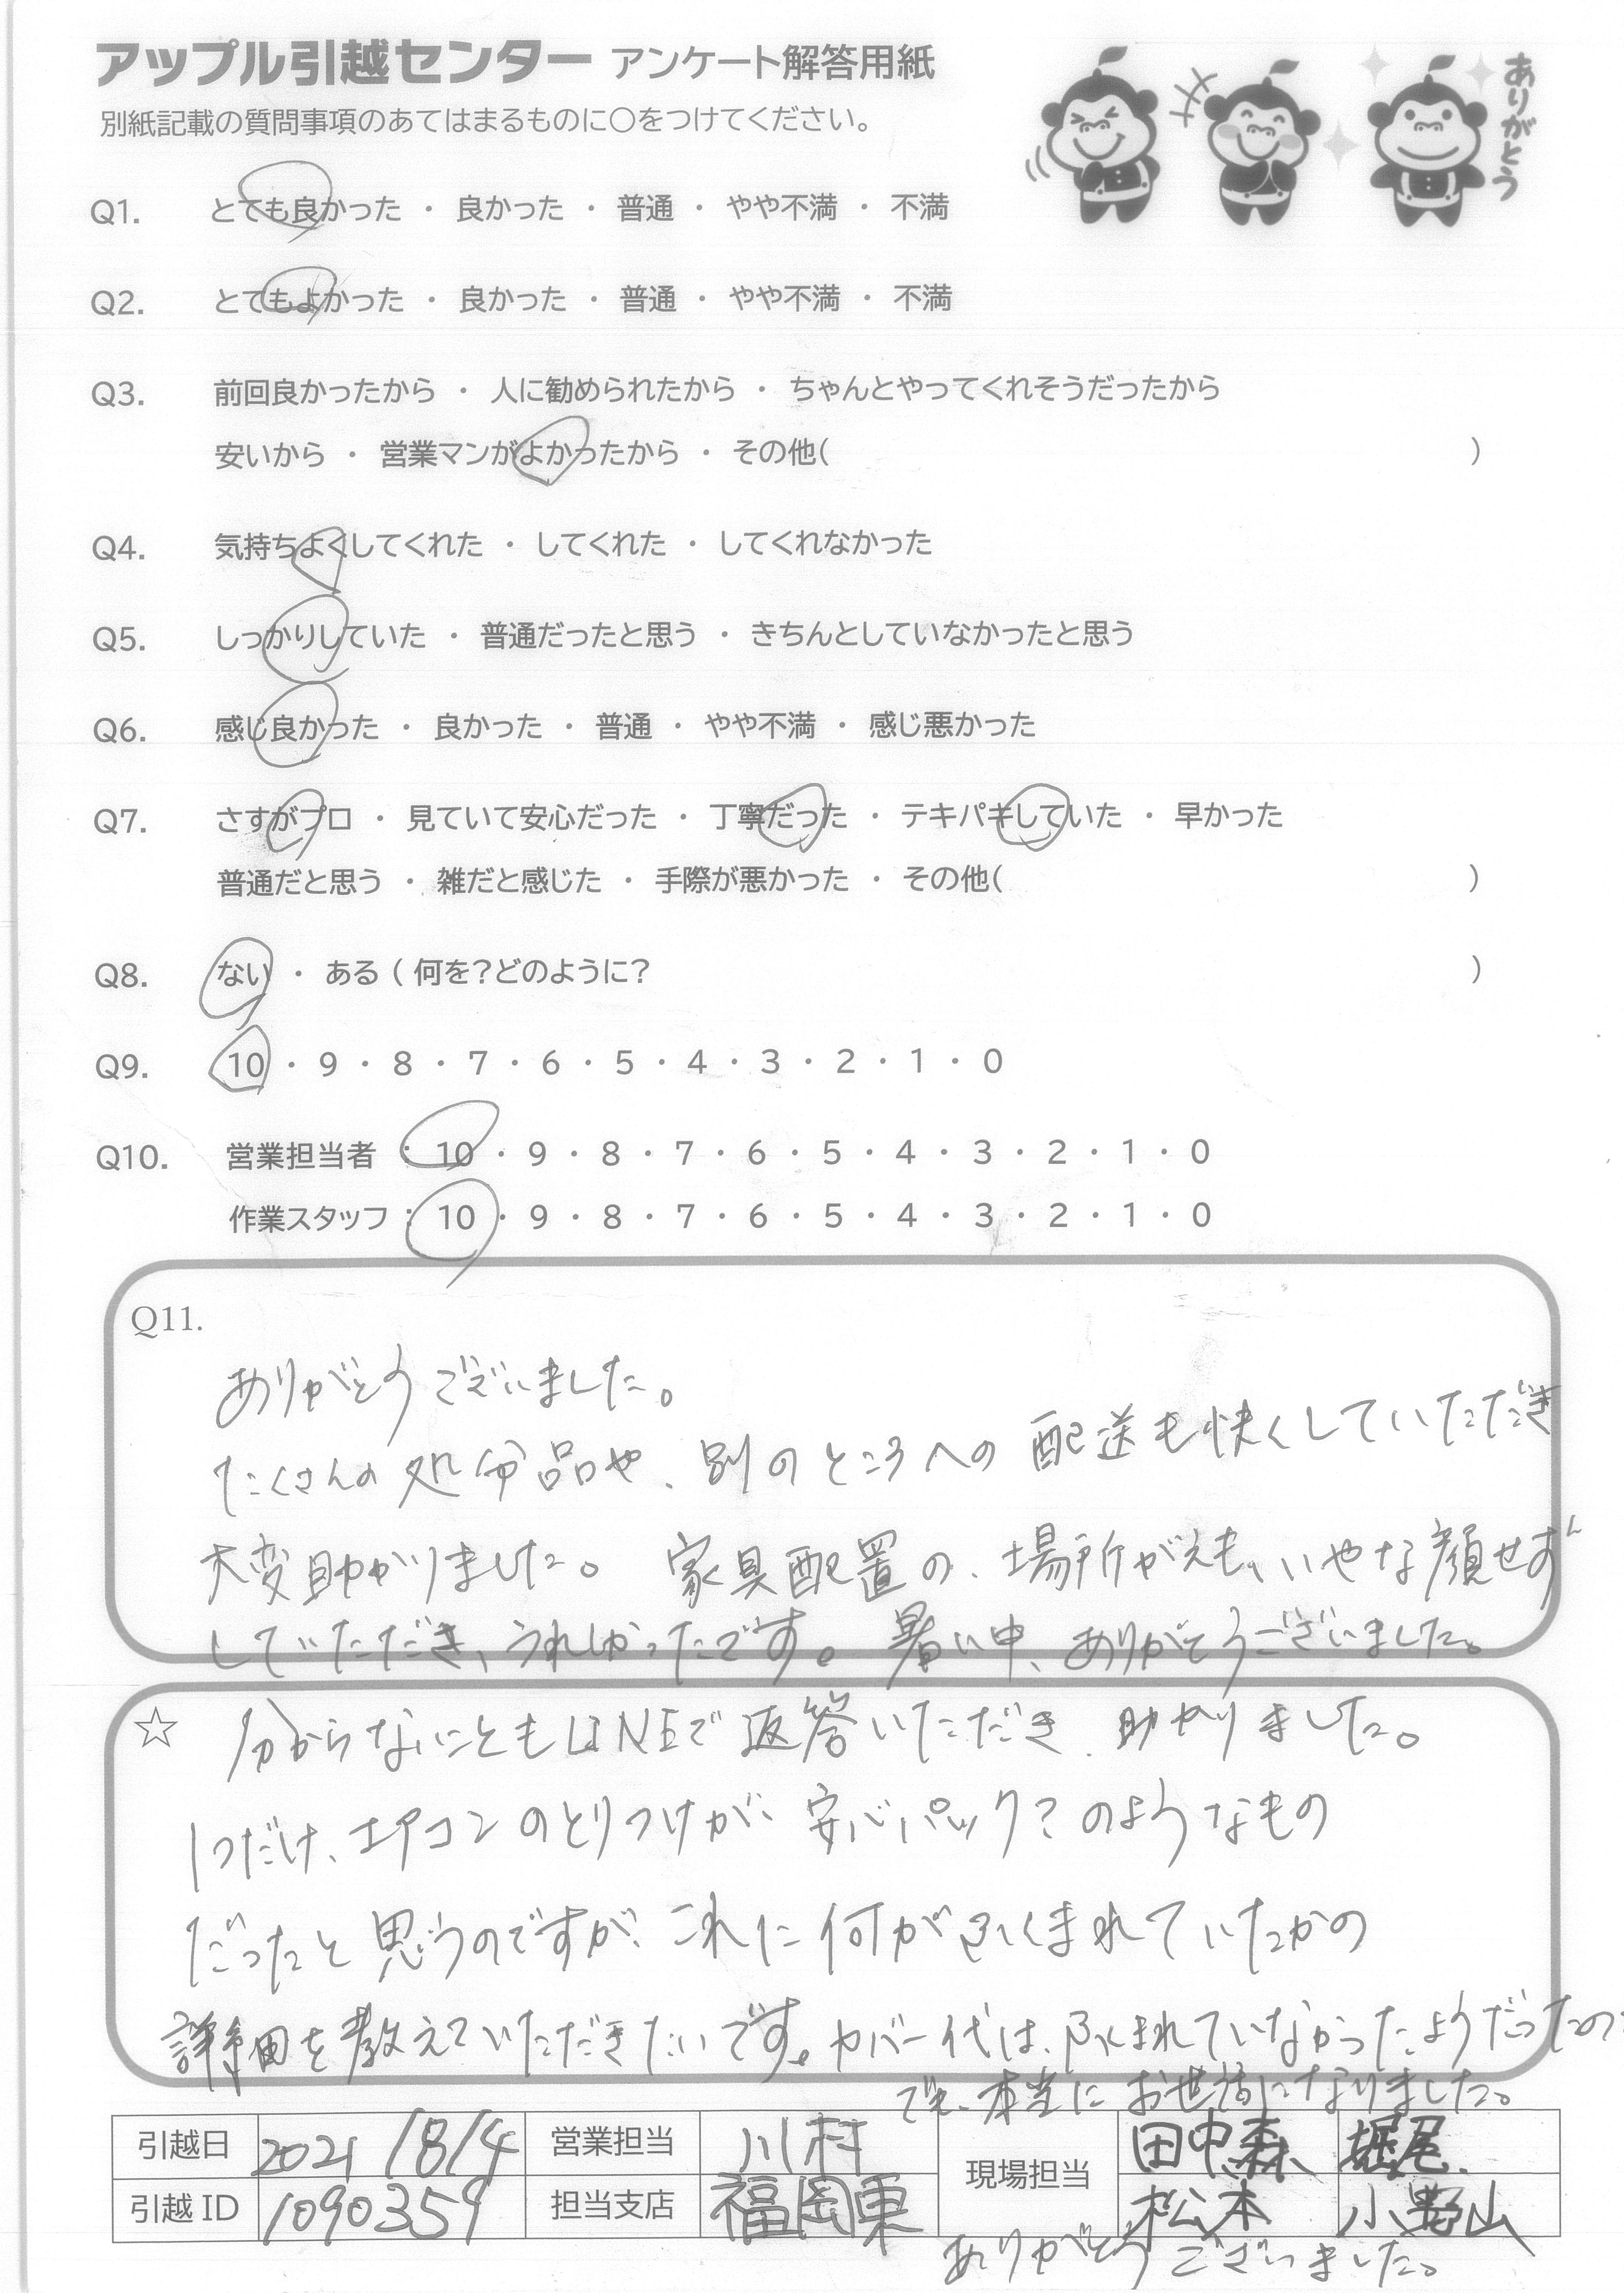 アップル引越センター アンケート解答用紙
ありがとう
別紙記載の質問事項のあてはまるものに〇をつけてください。
Q1. とても良かった ・ 良かった ・ 普通 ・ やや不満 ・ 不満
Q2. とてもよかった ・ 良かった ・ 普通 ・ やや不満 ・ 不満
Q3. 前回良かったから ・ 人に勧められたから ・ ちゃんとやってくれそうだったから
安いから ・ 営業マンがよかったから ・ その他( )
Q4. 気持ちよくしてくれた ・ してくれた ・ してくれなかった
Q5. しっかりしていた ・ 普通だったと思う ・ きちんとしていなかったと思う
Q6. 感じ良かった ・ 良かった ・ 普通 ・ やや不満 ・ 感じ悪かった
Q7. さすがプロ ・ 見ていて安心だった ・ 丁寧だった ・ テキパキしていた ・ 早かった
普通だと思う ・ 雑だと感じた ・ 手際が悪かった ・ その他( )
Q8. ない ・ ある ( 何を?どのように? )
Q9. 10 ・ 9 ・ 8 ・ 7 ・ 6 ・ 5 ・ 4 ・ 3 ・ 2 ・ 1 ・ 0
Q10. 営業担当者 : 10 ・ 9 ・ 8 ・ 7 ・ 6 ・ 5 ・ 4 ・ 3 ・ 2 ・ 1 ・ 0
作業スタッフ : 10 ・ 9 ・ 8 ・ 7 ・ 6 ・ 5 ・ 4 ・ 3 ・ 2 ・ 1 ・ 0
Q11.
ありがとうございました。
たくさんの処分品や、別のところへの配送も快くしていただき
大変助かりました。 家具配置の、場所がえも、いやな顔せず
していただき、うれしかったです。暑い中、ありがとうございました。
☆ 分からないこともLINEで返答いただき、助かりました。
1つだけ、エアコンのとりつけが、安心パック?のようなもの
だったと思うのですが、これに何がふくまれていたかの
詳細を教えていただきたいです。カバー代は、ふくまれていなかったようだったので
でも、本当にお世話になりました。
引越日 2021/8/4 営業担当 川村 現場担当 田中森 堀尾
引越ID 1090359 担当支店 福岡東 松本 小野山
ありがとうございました。